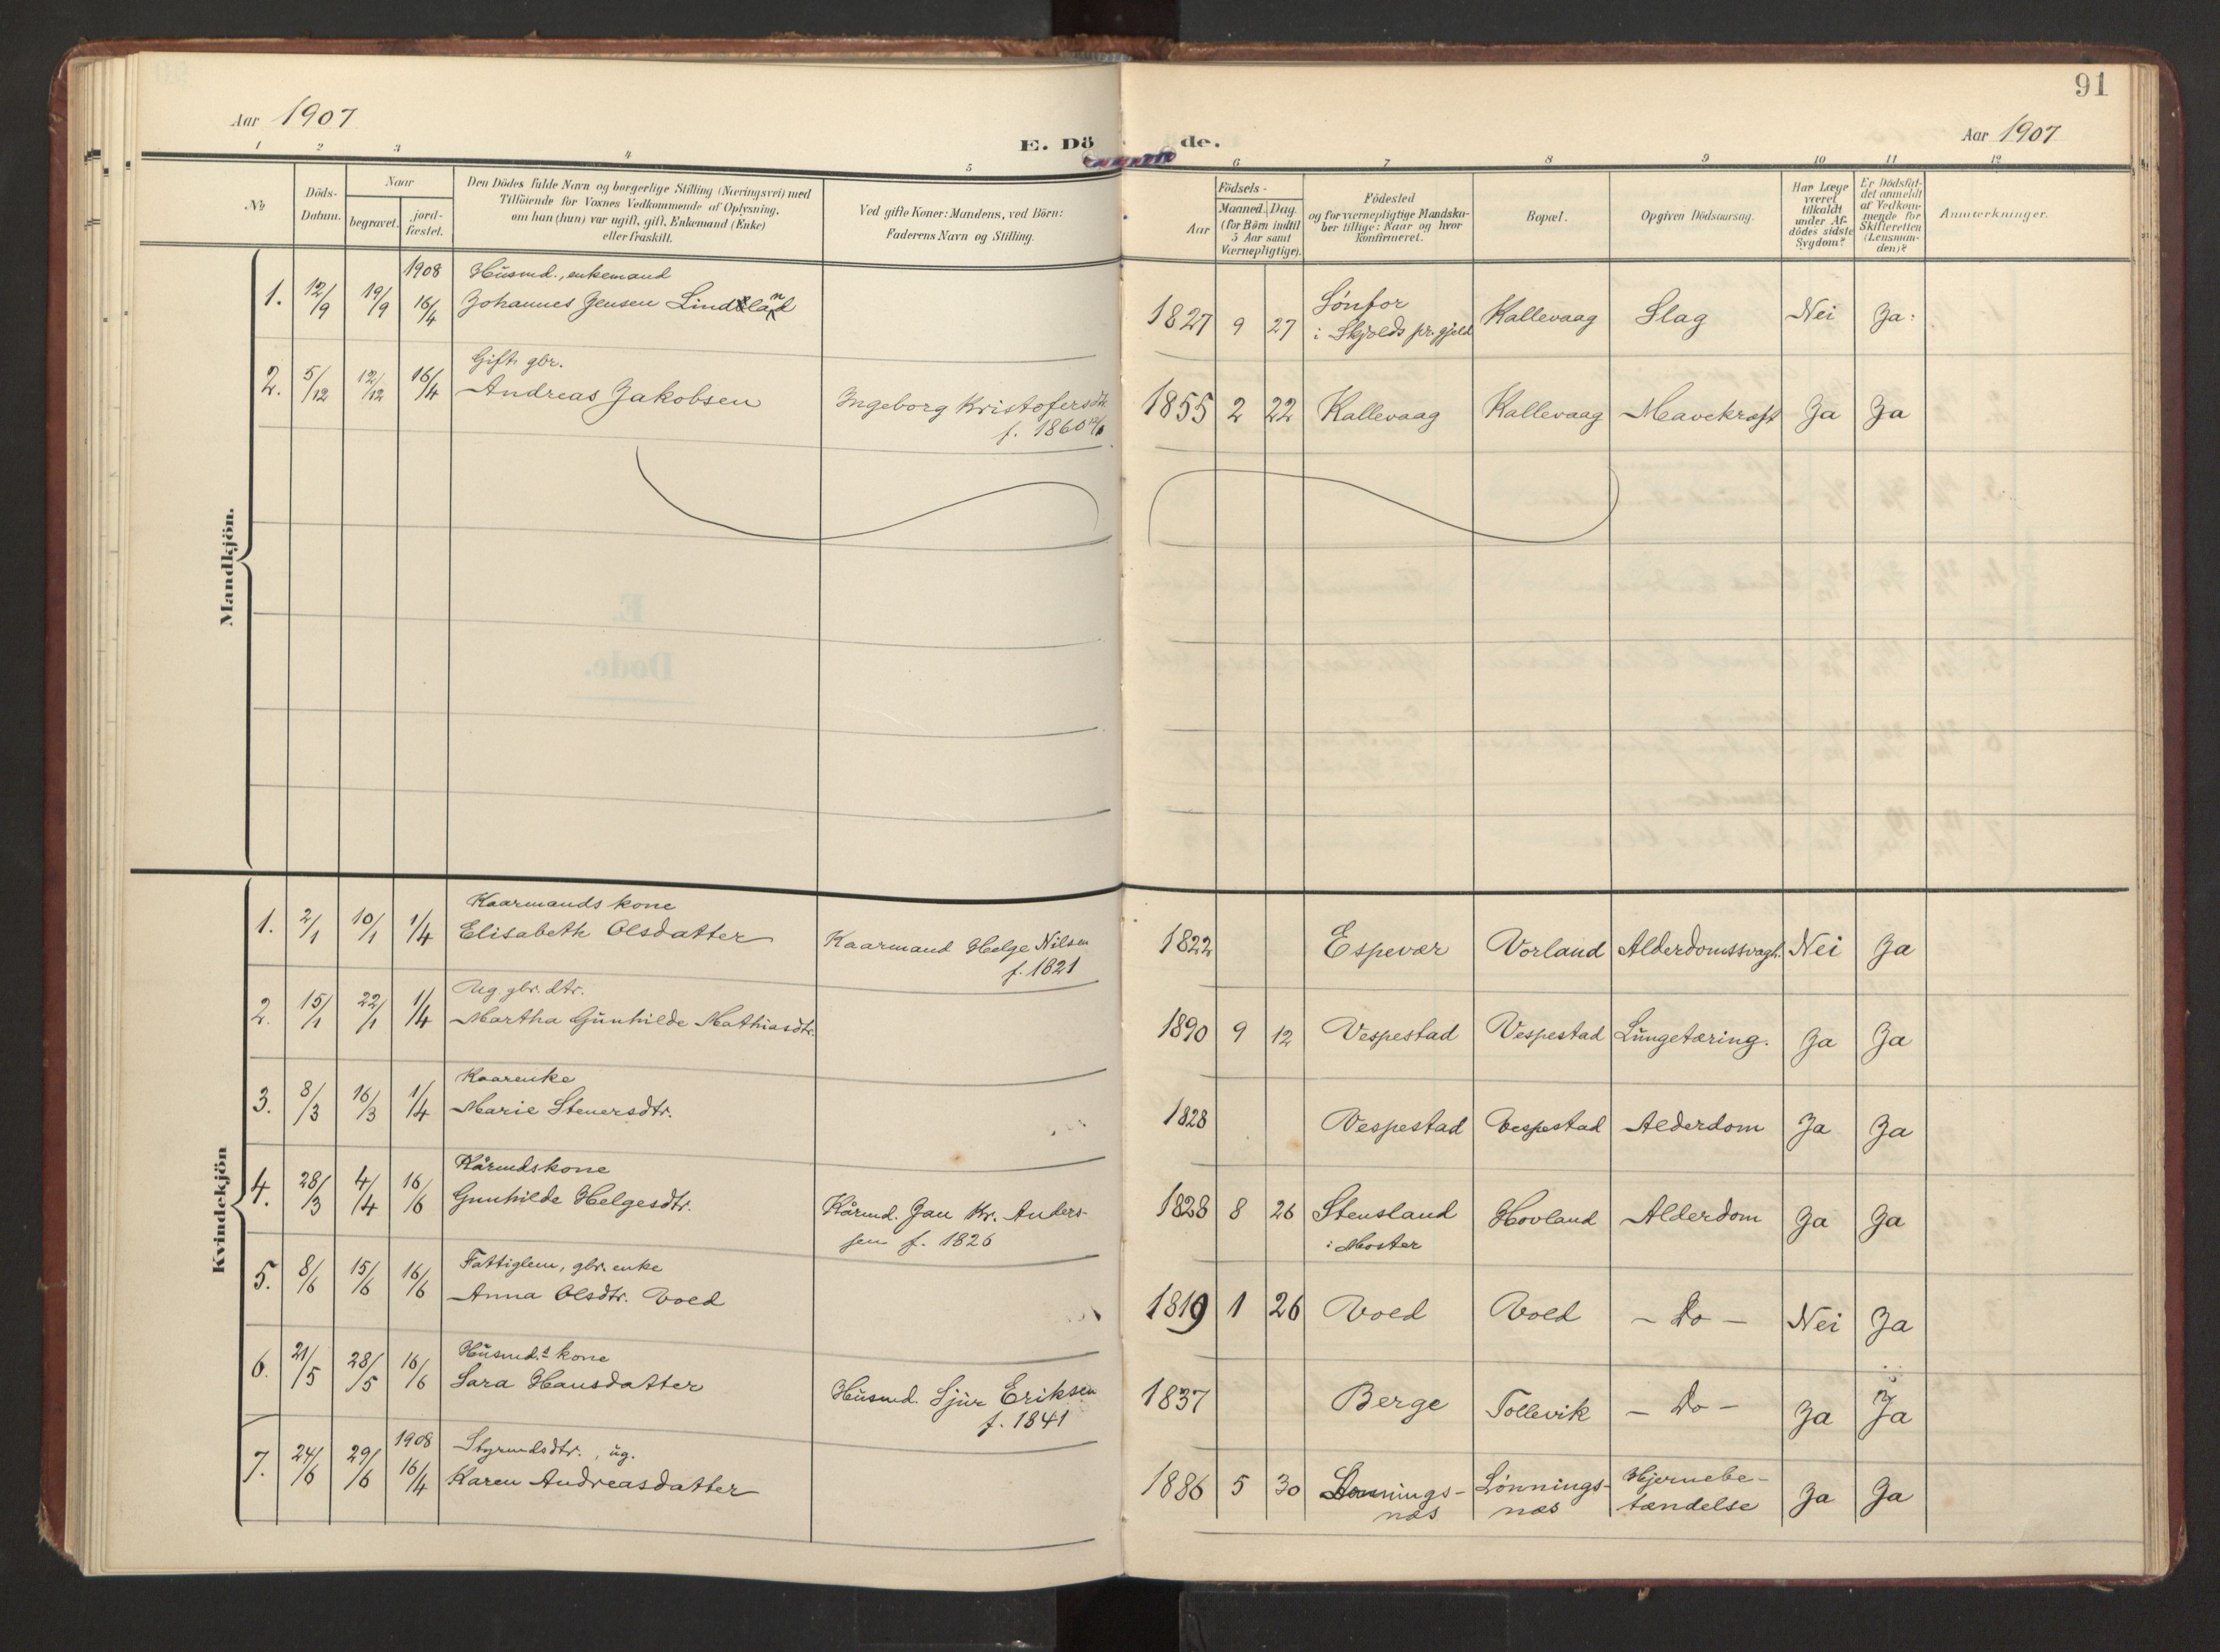 91
Aar 1907
E. Dö de.
Aar 1907
1 2 3 4 5 6 7 8 9 10 11 12
No
Döds-
Datum.
Naar
begravet.
jord-
fæstet.
Den Dödes fulde Navn og borgerlige Stilling (Næringsvei) med
Tilföiende for Voxnes Vedkommende af Oplysning,
om han (hun) var ugift, gift, Enkemand (Enke)
eller fraskilt.
Ved gifte Koner: Mandens, ved Börn:
Faderens Navn og Stilling.
Födsels-
Aar
Maaned. Dag.
(for Börn indtil
5 Aar samt
Værnepligtige).
Födested
og for værnepligtige Mandska-
ber tillige: Naar og hvor
konfirmeret.
Bopæl.
Opgiven Dödsaarsag.
Har Læge
været
tilkaldt
under Af-
dödes sidste
Sygdom?
Er Dödsfal-
det anmeldt
af Vedkom-
mende for
Skifteretten
(Lensman-
den)?
Anmærkninger.
Mandkjön.
1908 Husmd., enkemand
1. 12/9 19/9 16/4 Johannes Jensen Lindland 1827 9 27 Sønfor Kallevaag Slag Nei Ja
i Skjolds pr.gjeld
Gift gbr.
2. 5/12 12/12 16/4 Andreas Jakobsen Ingeborg Kristofersdtr. 1855 2 22 Kallevaag Kallevaag Mavekræft Ja Ja
f. 1860
Kvindekjön
Kaarmands kone
1. 2/1 10/1 1/4 Elisabeth Olsdatter Kaarmand Helge Nilsen 1822 Espevær Vorland Alderdomssvagh. Nei Ja
f. 1821
Ug. gbr. dtr.
2. 15/1 22/1 1/4 Martha Gunhilde Mathiasdtr. 1890 9 12 Vespestad Vespestad Lungetæring. Ja Ja
Kaarenke
3. 8/3 16/3 1/4 Marie Stenersdtr. 1828 Vespestad Vespestad Alderdom Ja Ja
Kårmdskone
4. 28/3 4/4 16/6 Gunhilde Helgesdtr. Kårmd. Jan Kr. Anders- 1828 8 26 Stensland Hovland Alderdom Ja Ja
sen f. 1826 i Moster
Fattiglem, gbr. enke
5. 8/6 15/6 16/6 Anna Olsdtr. Vold 1819 1 26 Vold Vold – Do – Nei Ja
Husmd.s kone
6. 21/5 28/5 16/6 Sara Hansdatter Husmd. Sjur Eriksen 1837 Berge Tollevik – Do – Ja Ja
f. 1841
1908 Styrmdsdtr., ug.
7. 24/6 29/6 16/4 Karen Andreasdatter 1886 5 30 Lønnings- Lønnings- Hjernebe- Ja Ja
næs næs tændelse